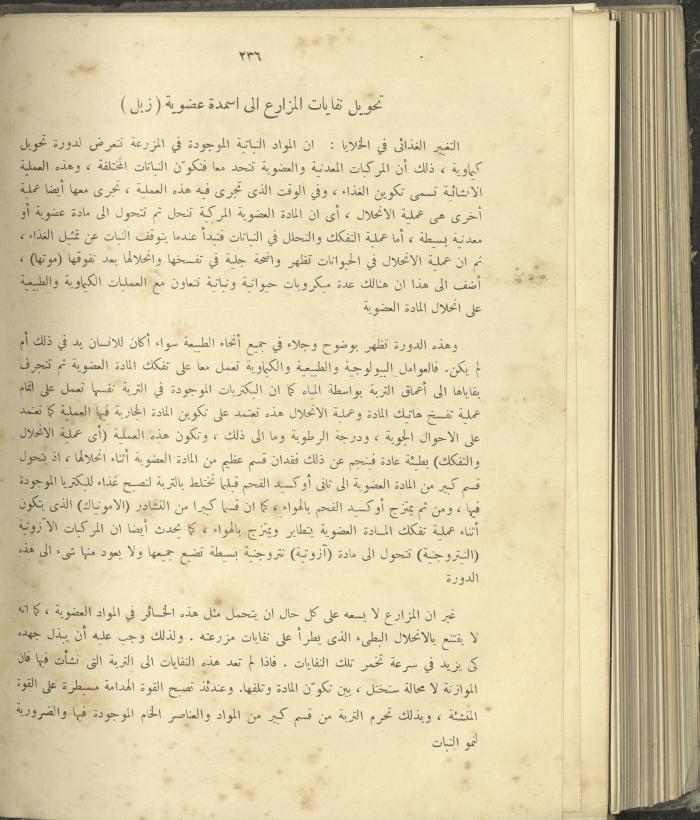 ٢٣٦
تحويل نفايات المزارع الى اسمدة عضوية ( زبل )
التغيير الغذائى في الخلايا : ان المواد النباتية الموجودة في المزرعة تتعرض لدورة تحويل
كيماوية ، ذلك أن المركبات المعدنية والعضوية تتحد معا فتكوّن النباتات المختلفة ، وهذه العملية
الانشائية تسمى تكوين الغذاء ، وفي الوقت الذى تجرى فيه هذه العملية ، تجرى معها أيضا عملية
أخرى هى عملية الانحلال ، أى ان المادة العضوية المركبة تنحل ثم تتحول الى مادة عضوية أو
معدنية بسيطة ، أما عملية التفكك والتحلل في النباتات فتبدأ عندما يتوقف النبات عن تمثيل الغذاء ،
ثم ان عملية الانحلال في الحيوانات تظهر واضحة جلية في تفسخها وانحلالها بعد نفوقها (موتها) ،
أضف الى هذا ان هنالك عدة ميكروبات حيوانية ونباتية تتعاون مع العمليات الكيماوية والطبيعية
على انحلال المادة العضوية
وهذه الدورة تظهر بوضوح وجلاء في جميع أنحاء الطبيعة سواء أكان للانسان يد في ذلك أم
لم يكن. فالعوامل البيولوجية والطبيعية والكيماوية تعمل معا على تفكك المادة العضوية ثم تنجرف
بقاياها الى أعماق التربة بواسطة المياه كما ان البكتريات الموجودة في التربة نفسها تعمل على اتمام
عملية تفسخ هاتيك المادة وعملية الانحلال هذه تعتمد على تكوين المادة الجارية فيها العملية كما تعتمد
على الاحوال الجوية ، ودرجة الرطوبة وما الى ذلك ، وتكون هذه العملية (أى عملية الانحلال
والتفكك) بطيئة عادة فينجم عن ذلك فقدان قسم عظيم من المادة العضوية أثناء انحلالها ، اذ يتحول
قسم كبير من المادة العضوية الى ثانى أوكسيد الفحم قبلما تختلط بالتربة لتصبح غذاء للبكتريا الموجودة
فيها ، ومن ثم يمتزج أوكسيد الفحم بالهواء ، كما ان قسما كبيرا من النشادر (الامونياك) الذى يتكون
أثناء عملية تفكك المادة العضوية يتطاير ويمتزج بالهواء ، كما يحدث أيضا ان المركبات الآزوتية
(النيتروجنية) تتحول الى مادة (آزوتية) نتروجنية بسيطة تضيع جميعها ولا يعود منها شىء الى هذه
الدورة
غير ان المزارع لا يسعه على كل حال ان يتحمل مثل هذه الخسائر في المواد العضوية ، كما انه
لا يقتنع بالانحلال البطىء الذى يطرأ على نفايات مزرعته . ولذلك وجب عليه أن يبذل جهده
كى يزيد في سرعة تخمر تلك النفايات . فاذا لم تعد هذه النفايات الى التربة التى نشأت فيها فان
الموازنة لا محالة ستختل ، بين تكوّن المادة وتلفها. وعندئذ تصبح القوة الهدامة مسيطرة على القوة
المنشئة ، وبذلك تحرم التربة من قسم كبير من المواد والعناصر الخام الموجودة فيها والضرورية
لنمو النبات